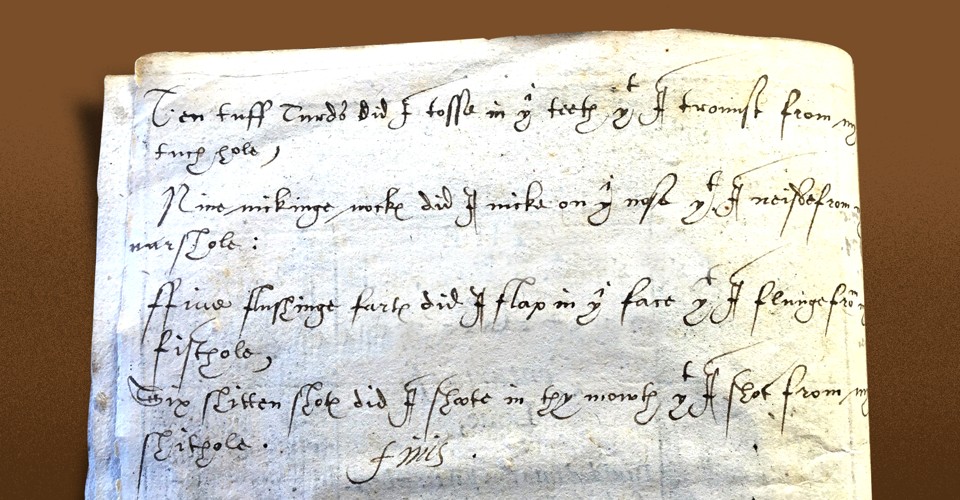 Ten tuff Turds did I tosse in yʳ teeth yᵗ I tromist from my
tuch hole,
Nine nickinge nockes did I nicke on yʳ nose yᵗ I neisde from
narshole:
ffive flushinge fartes did I flap in yʳ face yᵗ I flunge frō my
fisthole,
Six shitten shotes did I shoote in thy mowth yᵗ I shot from my
shithole.
finis.